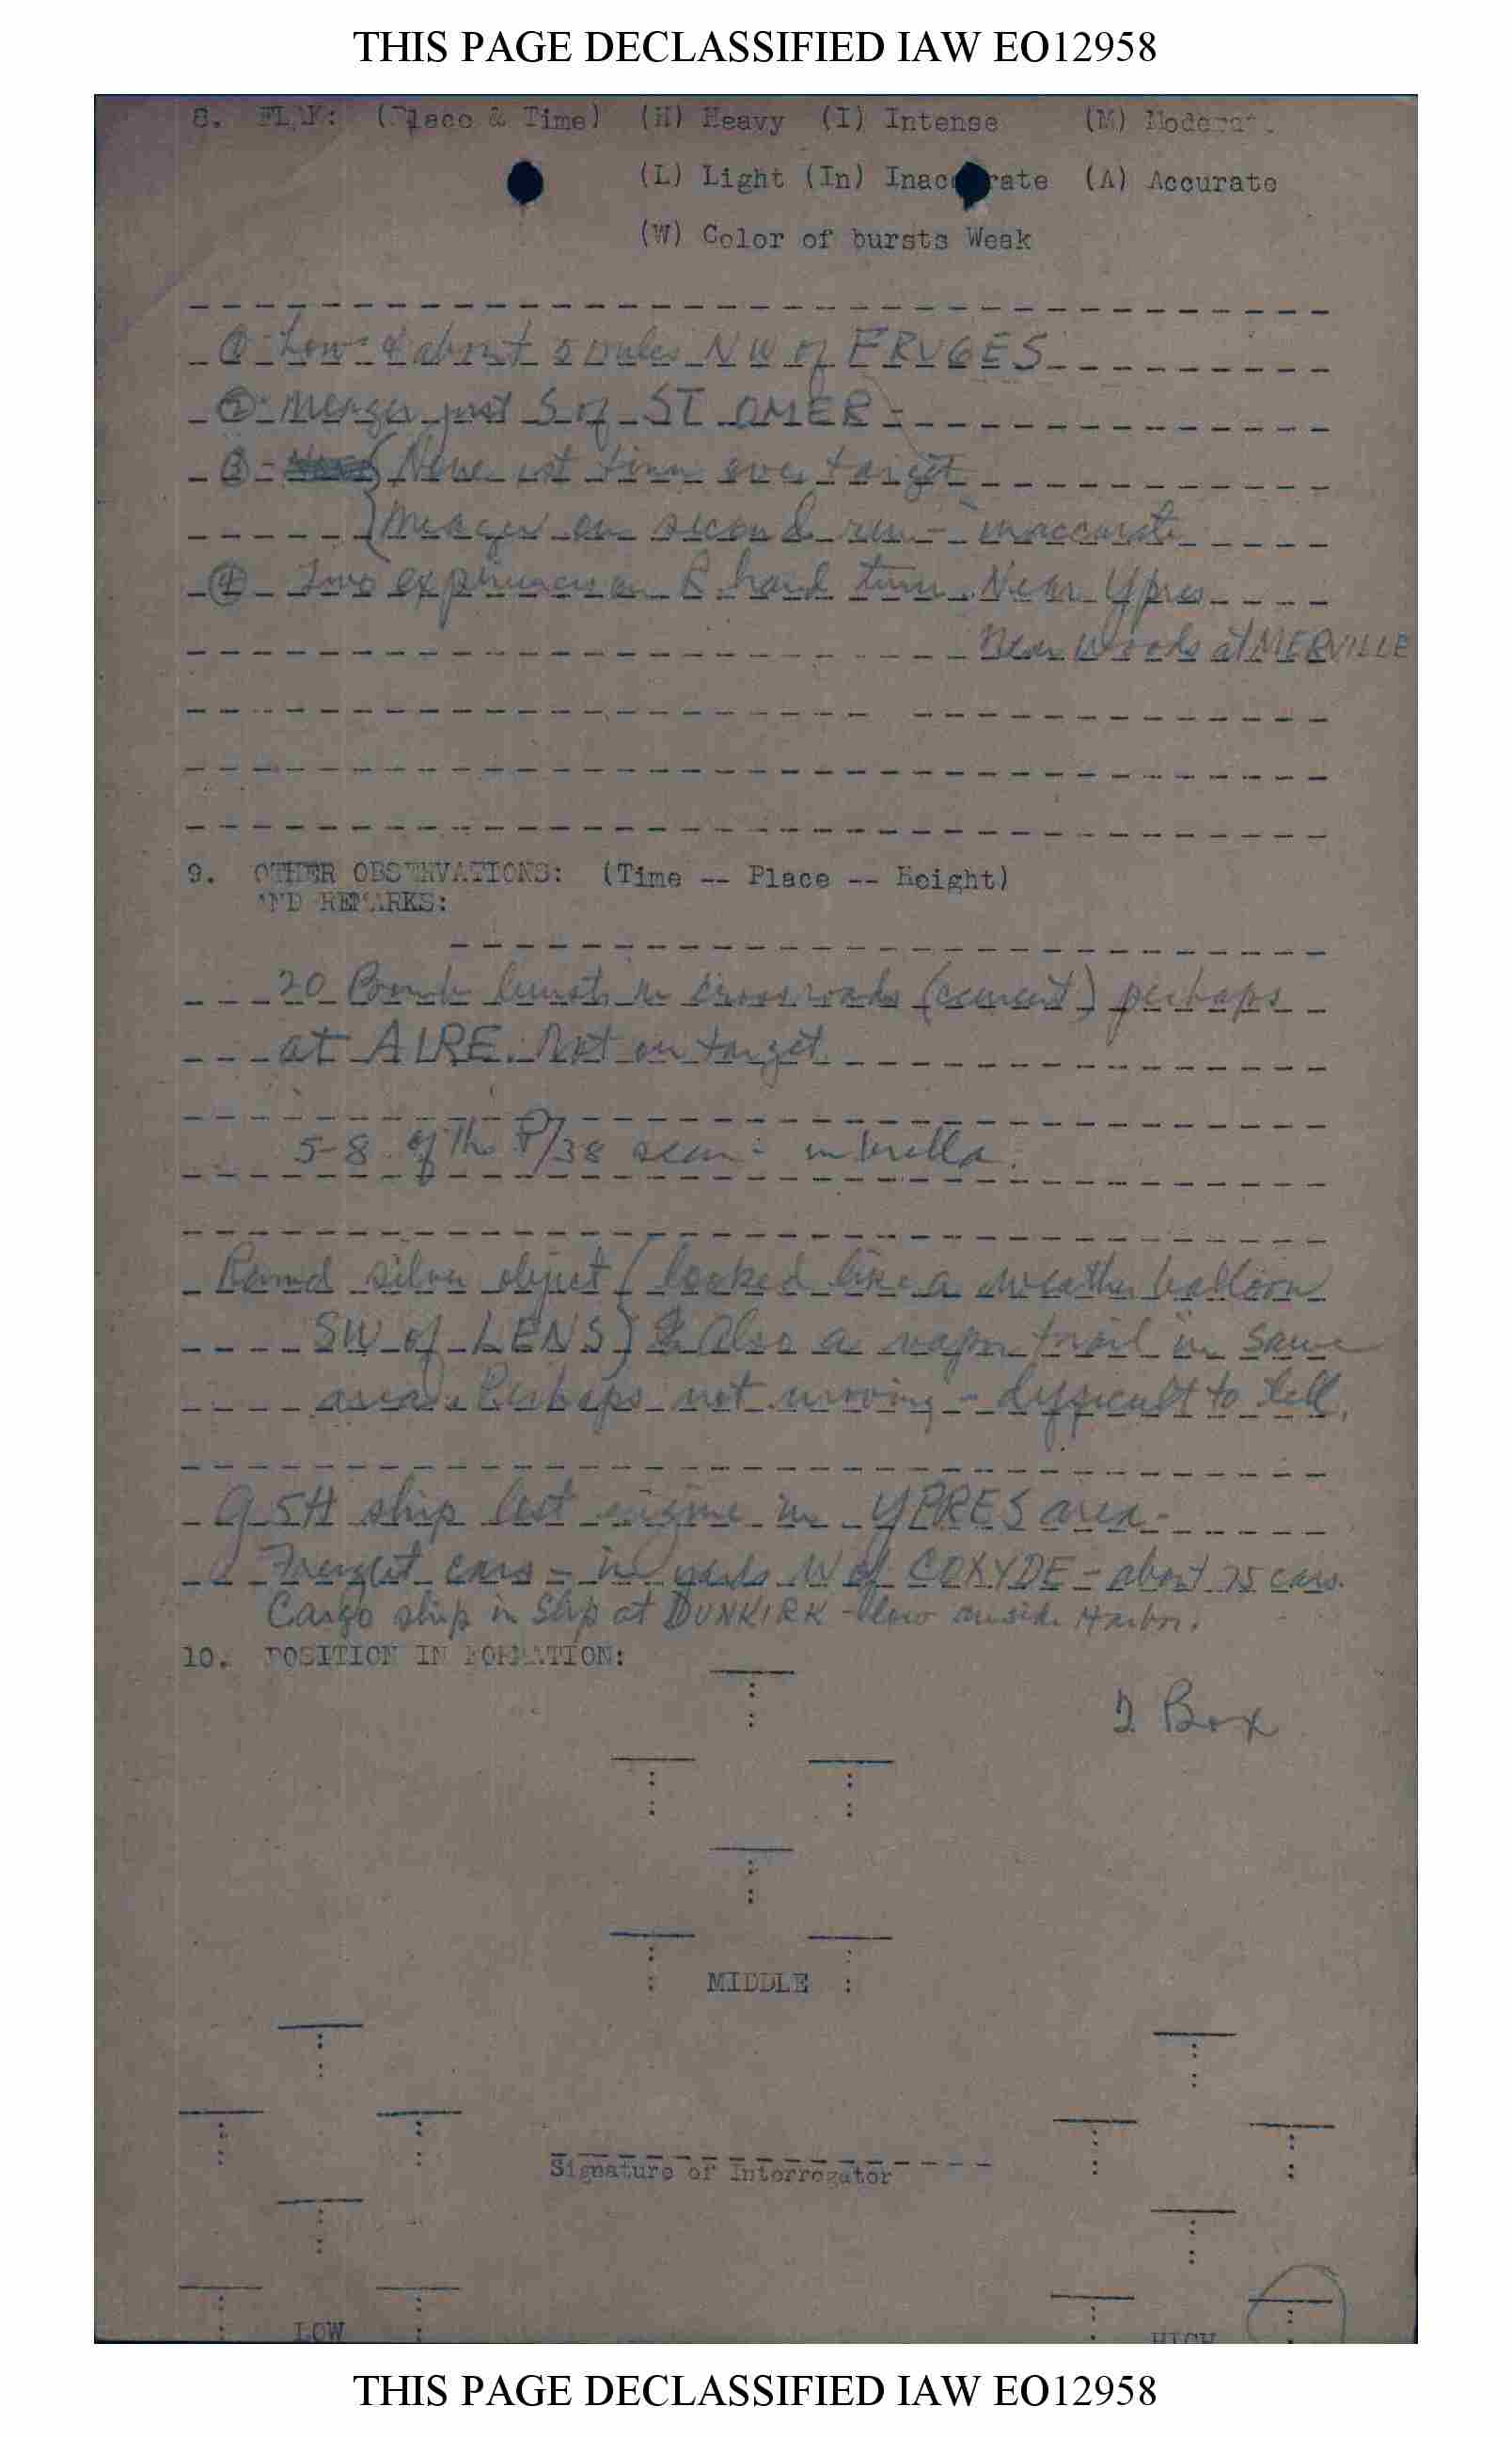 THIS PAGE DECLASSIFIED IAW EO12958
8. FLAK: (Place & Time) (H) Heavy (I) Intense (M) Moderat
(L) Light (In) Inaccurate (A) Accurate
(W) Color of bursts Weak
① Low & about 5 miles NW of FRUGES
② Meager just S of ST OMER -
③ - None 1st time over target
Meager on second run - inaccurate
④ Two on R hand turn. Near Ypres
Near Woods at MERVILLE
9. OTHER OBSERVATIONS: (Time -- Place -- Height)
AND REMARKS:
20 Bomb bursts on crossroads (cement) perhaps
at AIRE. Not on target
5-8 of the P/38 seen - umbrella.
Round silver object (looked like a weather balloon
SW of LENS) Also a vapor trail in same
area. Perhaps not moving - difficult to tell.
ship lost engine in YPRES area -
Freight cars - in yards W of COXYDE - about 75 cars.
Cargo ship in slip at DUNKIRK - outside Harbor.
10. POSITION IN FORMATION:
2 Box
MIDDLE
Signature of Interrogator
LOW
HIGH
THIS PAGE DECLASSIFIED IAW EO12958